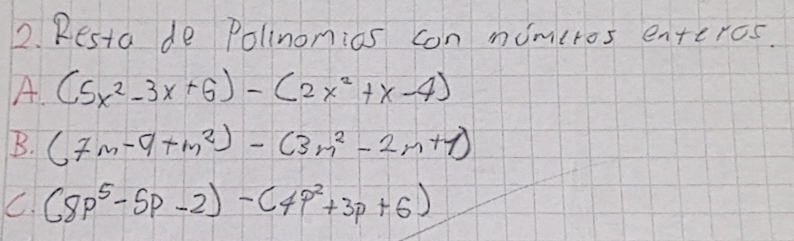 2. Resta de Polinomios con números enteros.
A. (5x² - 3x + 6) - (2x² + x - 4)
B. (7m - 9 + m²) - (3m² - 2m + 1)
C. (8p⁵ - 5p - 2) - (4p² + 3p + 6)